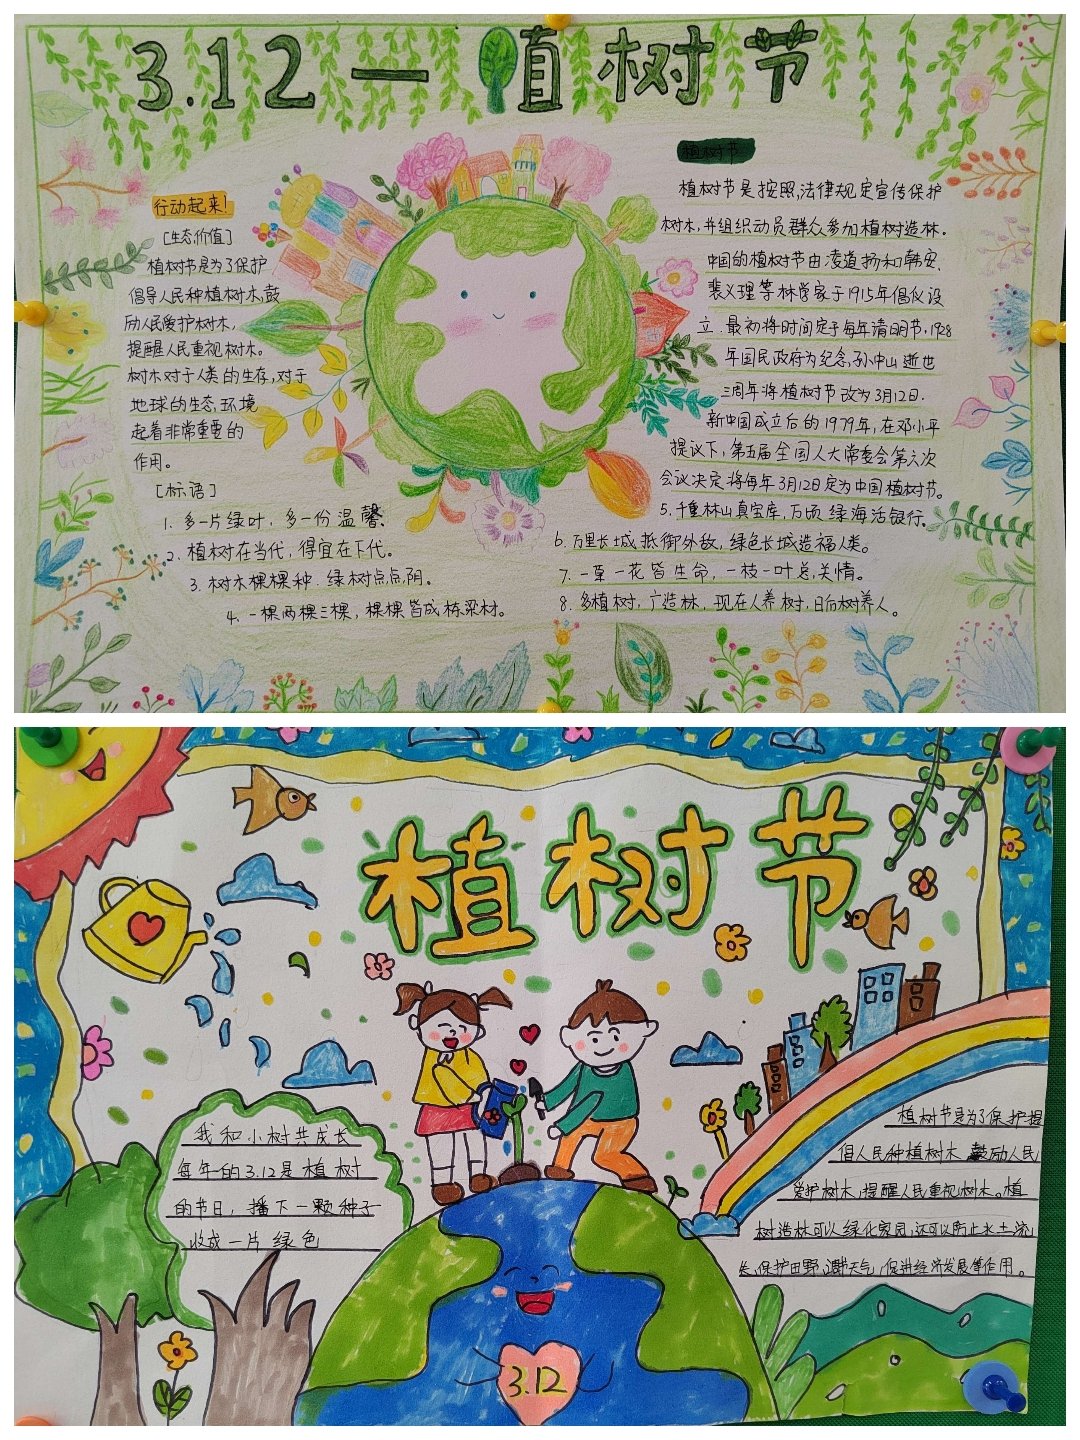 3.12—植树节
行动起来!
[生态价值]
植树节是为了保护
倡导人民种植树木,鼓
励人民爱护树木,
提醒人民重视树木。
树木对于人类的生存,对于
地球的生态,环境
起着非常重要的
作用。
[标语]
1. 多一片绿叶，多一份温馨.
2. 植树在当代，得宜在下代。
3. 树木棵棵种.绿树点点阴。
4. 一棵两棵三棵，棵棵皆成栋梁材。
植树节
植树节是按照,法律规定宣传保护
树木,并组织动员群众参加植树造林.
中国的植树节由凌道扬和韩安.
裴义理等林学家于1915年倡仪设
立.最初将时间定于每年清明节,1928
年国民政府为纪念,孙中山逝世
三周年将植树节改为3月12日.
新中国成立后的1979年,在邓小平
提议下,第五届全国人大常委会第六次
会议决定将每年3月12日定为中国植树节。
5. 千重林山真宝库,万顷绿海活银行。
6. 万里长城抵御外敌,绿色长城造福人类。
7. 一草一花皆生命，一枝一叶总关情。
8. 多植树，广造林，现在人养树，日后树养人。
植树节
我和小树共成长
每年的3.12是植树
的节日，播下一颗种子
收成一片绿色
植树节是为了保护提
倡人民种植树木 鼓励人民
爱护树木,提醒人民重视树木。植
树造林可以绿化家园,还可以防止水土流
失,保护田野,调节天气,促进经济发展等作用。
3.12